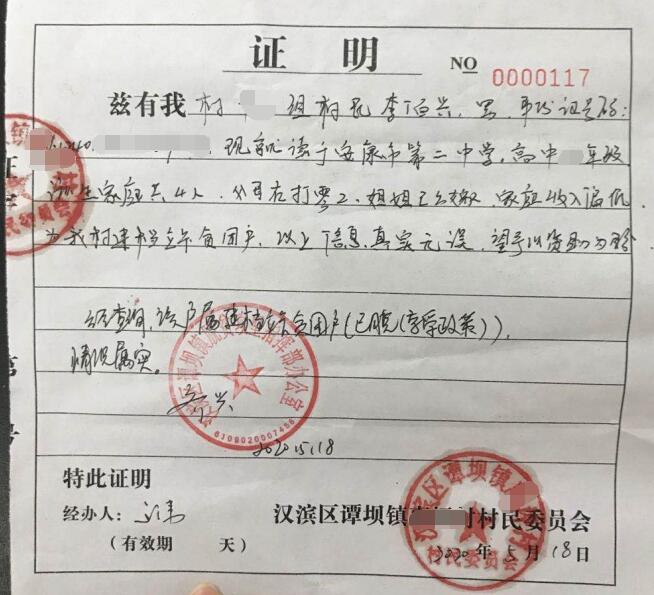 证 明
NO 0000117
兹有我村 组村民李伯兴，男，身份证号码：
现就读于安康市第二中学，高中 年级
该生家庭共4人，父母在打零工，姐姐已出嫁，家庭收入偏低
为我村建档立卡贫困户，以上信息真实无误，望予以资助为盼
经查询，该户属建档立卡贫困户（已脱（享受政策）），
情况属实。
2020.5.18
特此证明
经办人：
汉滨区谭坝镇 村村民委员会
（有效期 天）
2020年5月18日
汉滨区谭坝镇 指挥部办公室
6109020007486
汉滨区谭坝镇 村
村民委员会
坝镇 村
民委员会
证
第
号